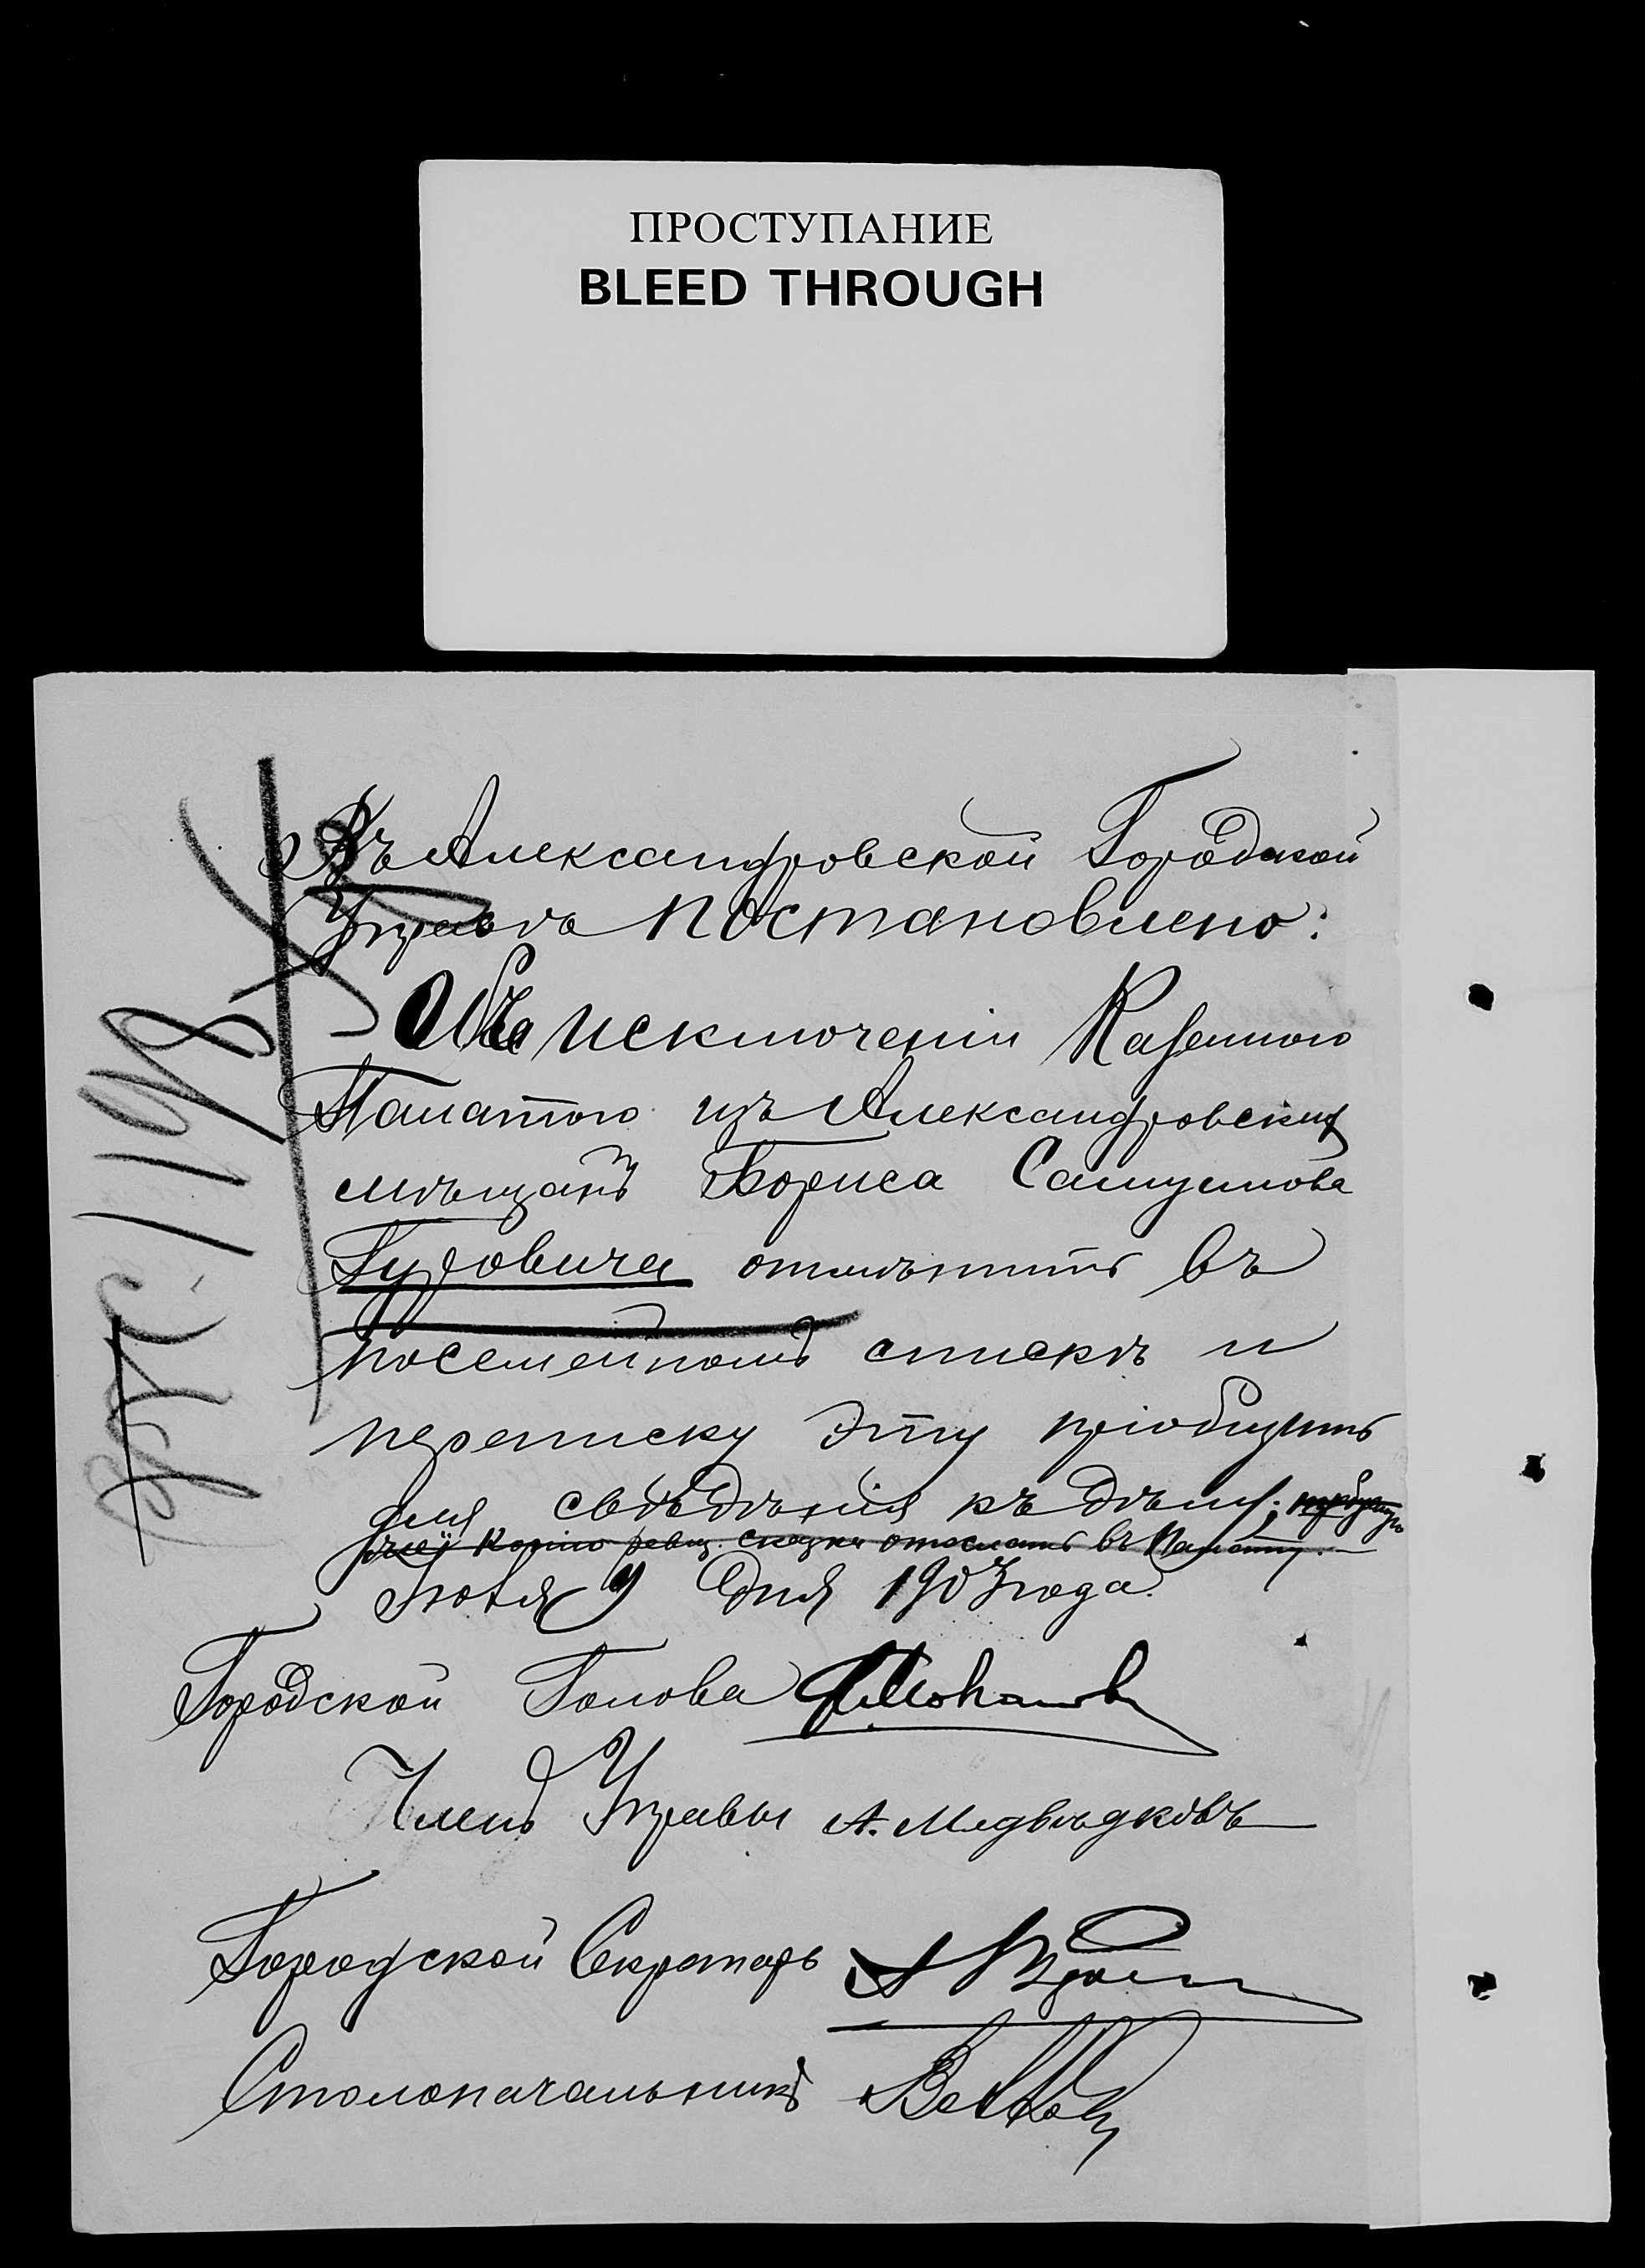 ПРОСТУПАНИЕ
BLEED THROUGH
Въ Александровской Городской
Управѣ постановлено:
Объ исключеніи Казенною
Палатою изъ Александровскихъ
мѣщанъ Бориса Самуилова
Гуровича отмѣтить въ
посемейномъ спискѣ и
переписку эту пріобщить
для свѣдѣнія къ дѣлу;
копію ревиз. сказки отослать въ Палату.
Іюля 9 дня 1907 года.
Городской Голова
Членъ Управы А. Медвѣдковъ
Городской Секретарь
Столоначальникъ